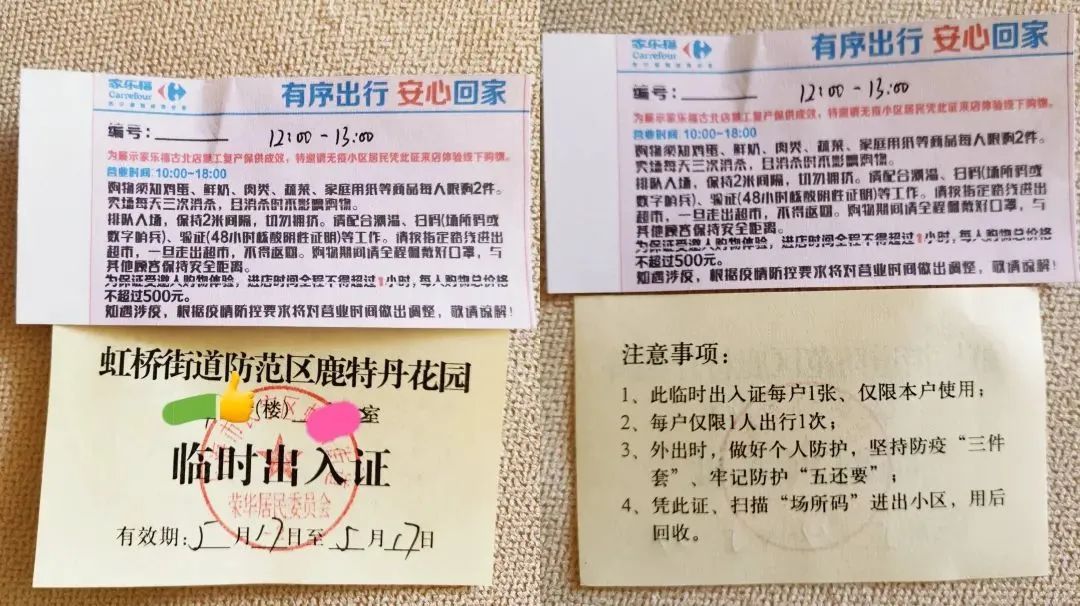 家乐福
Carrefour
有序出行 安心回家
编号：
12:00-13:00
为展示家乐福古北店复工复产保供成效，特邀请无疫小区居民凭此证来店体验线下购物。
营业时间：10:00~18:00
购物须知鸡蛋、鲜奶、肉类、蔬菜、家庭用纸等商品每人限购2件。
卖场每天三次消杀，且消杀时不影响购物。
排队入场，保持2米间隔，切勿拥挤。请配合测温、扫码(场所码或
数字哨兵)、验证(48小时核酸阴性证明)等工作。请按指定路线进出
超市，一旦走出超市，不得返回。购物期间请全程佩戴好口罩，与
其他顾客保持安全距离。
为保证受邀人购物体验，进店时间全程不得超过1小时，每人购物总价格
不超过500元。
如遇涉疫，根据疫情防控要求将对营业时间做出调整，敬请谅解！
虹桥街道防范区鹿特丹花园
(楼)
室
临时出入证
荣华居民委员会
有效期:5月17日至5月17日
家乐福
Carrefour
有序出行 安心回家
编号：
12:00-13:00
为展示家乐福古北店复工复产保供成效，特邀请无疫小区居民凭此证来店体验线下购物。
营业时间：10:00~18:00
购物须知鸡蛋、鲜奶、肉类、蔬菜、家庭用纸等商品每人限购2件。
卖场每天三次消杀，且消杀时不影响购物。
排队入场，保持2米间隔，切勿拥挤。请配合测温、扫码(场所码或
数字哨兵)、验证(48小时核酸阴性证明)等工作。请按指定路线进出
超市，一旦走出超市，不得返回。购物期间请全程佩戴好口罩，与
其他顾客保持安全距离。
为保证受邀人购物体验，进店时间全程不得超过1小时，每人购物总价格
不超过500元。
如遇涉疫，根据疫情防控要求将对营业时间做出调整，敬请谅解！
注意事项：
1、此临时出入证每户1张、仅限本户使用；
2、每户仅限1人出行1次；
3、外出时，做好个人防护，坚持防疫“三件
套”、牢记防护“五还要”；
4、凭此证、扫描“场所码”进出小区，用后
回收。